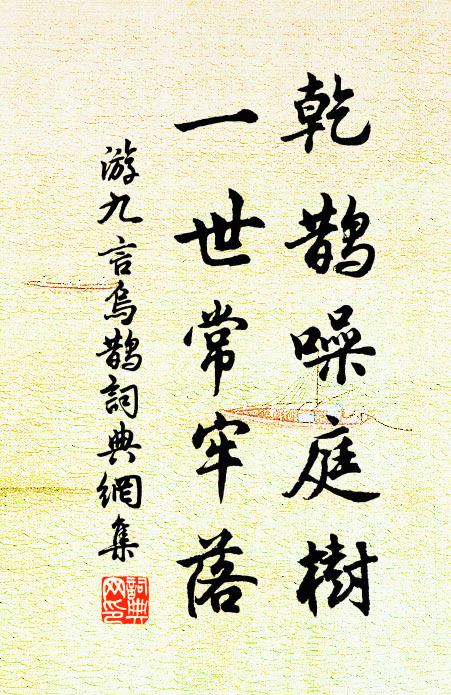 乾鵲噪庭樹
一世常牢落
游九言烏鵲詞典網集
詞典網印